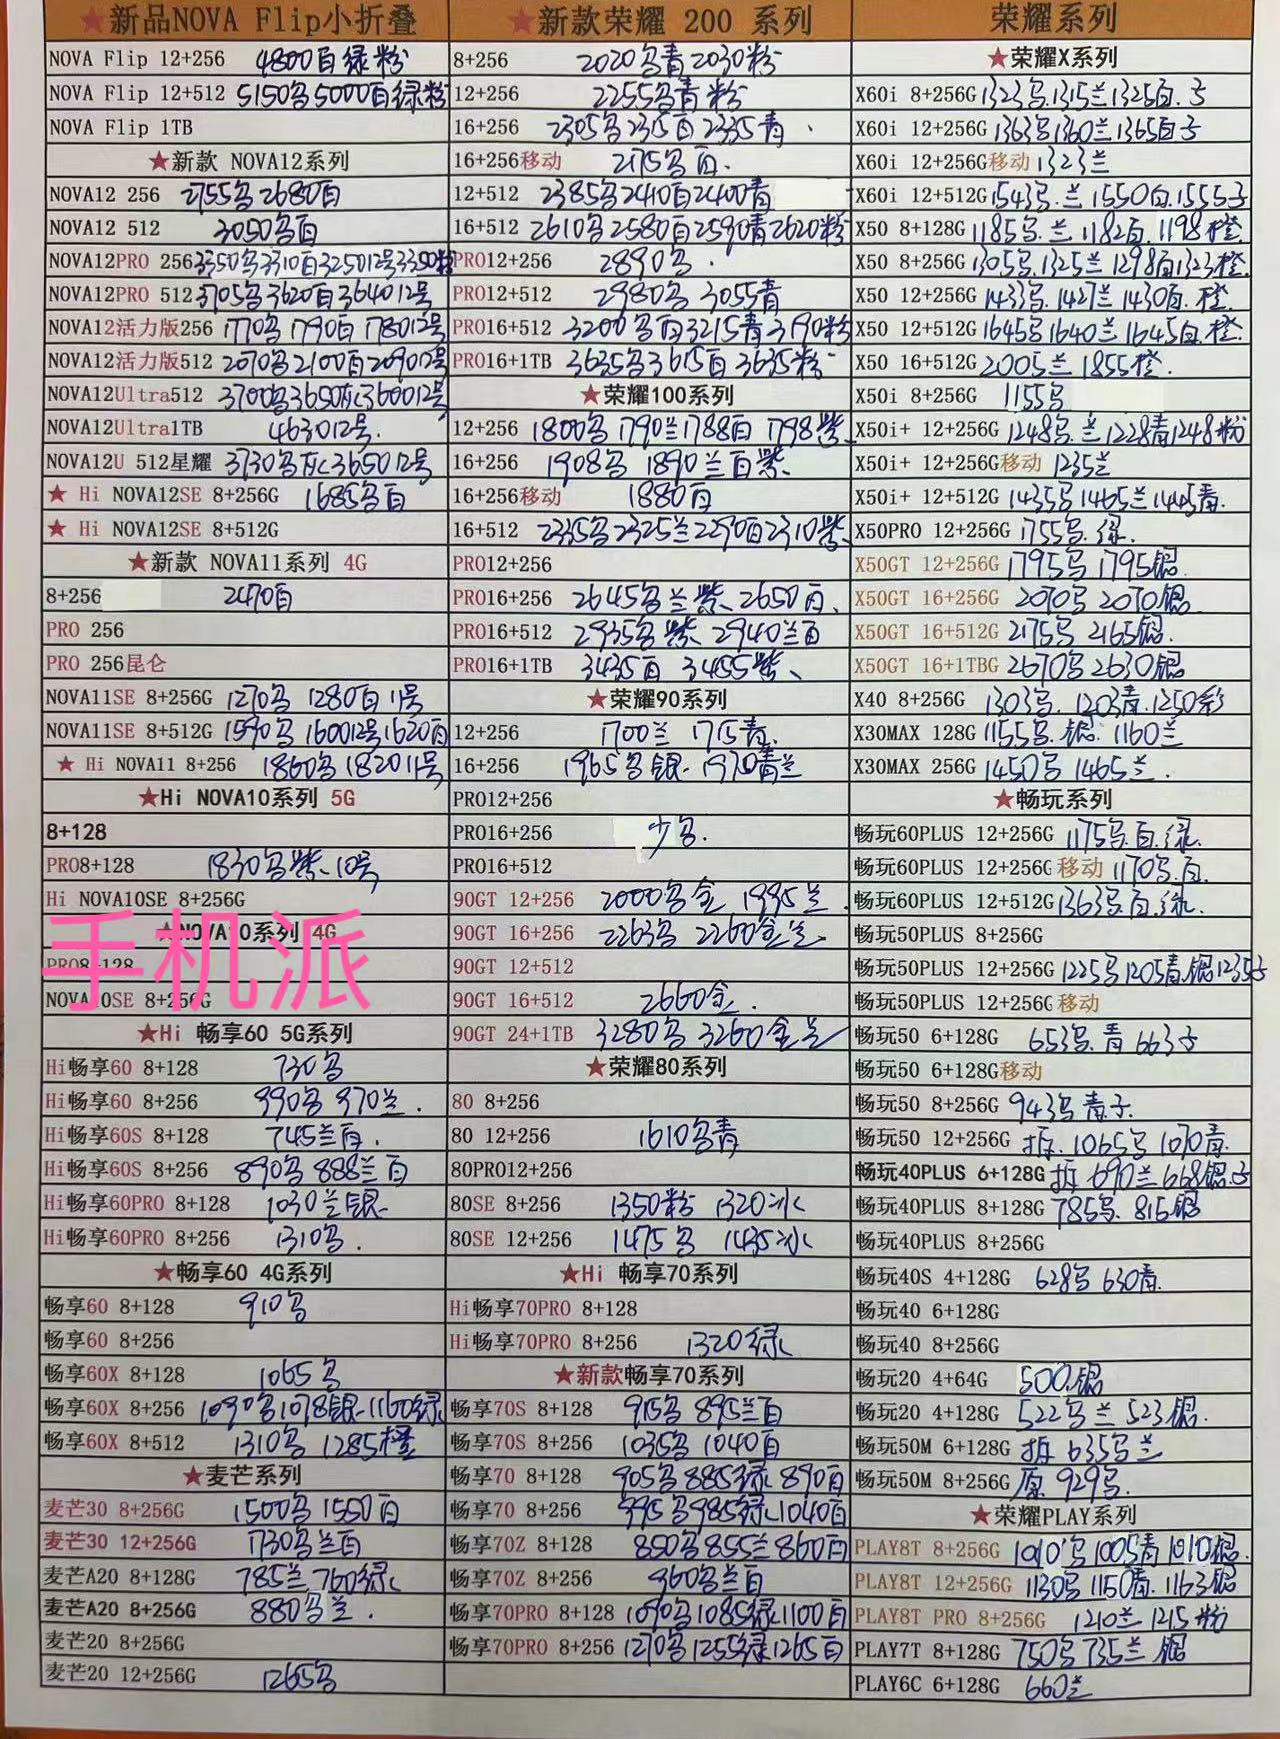 ★新品NOVA Flip小折叠
NOVA Flip 12+256 4800白绿粉
NOVA Flip 12+512 5150乌5000白绿粉
NOVA Flip 1TB
★新款 NOVA12系列
NOVA12 256 2755乌2680白
NOVA12 512 3050乌白
NOVA12PRO 256 3350乌3310白325012号3350粉
NOVA12PRO 512 3705乌3620白364012号
NOVA12活力版256 1770乌1790白178012号
NOVA12活力版512 2070乌2100白209012号
NOVA12Ultra512 3700乌3650灰360012号
NOVA12Ultra1TB 463012号.
NOVA12U 512星耀 3730乌灰365012号
★ Hi NOVA12SE 8+256G 1685乌白
★ Hi NOVA12SE 8+512G
★新款 NOVA11系列 4G
8+256 2470白
PRO 256
PRO 256昆仑
NOVA11SE 8+256G 1270乌 1280白11号
NOVA11SE 8+512G 1590乌160012号1620白
★ Hi NOVA11 8+256 1860乌182011号
★Hi NOVA10系列 5G
8+128
PRO8+128 1830乌紫、10号
Hi NOVA10SE 8+256G
★NOVA10系列 4G
手机派
PRO8+128
NOVA10SE 8+256G
★Hi 畅享60 5G系列
Hi畅享60 8+128 730乌
Hi畅享60 8+256 990乌 970兰.
Hi畅享60S 8+128 745兰白.
Hi畅享60S 8+256 890乌 888兰白
Hi畅享60PRO 8+128 1030兰银
Hi畅享60PRO 8+256 1310乌.
★畅享60 4G系列
畅享60 8+128 910乌
畅享60 8+256
畅享60X 8+128 1065乌
畅享60X 8+256 1090乌1078银1160绿
畅享60X 8+512 1310乌 1285橙
★麦芒系列
麦芒30 8+256G 1500乌 1550白
麦芒30 12+256G 1730乌兰白
麦芒A20 8+128G 785兰760绿
麦芒A20 8+256G 880乌兰.
麦芒20 8+256G
麦芒20 12+256G 1265乌
★新款荣耀 200 系列
8+256 2020乌青2030粉
12+256 2255乌青粉
16+256 2305乌2315白2335青
16+256移动 2175乌白.
12+512 2385乌2410白2400青
16+512 2610乌2580白2590青2620粉
PRO12+256 2890乌.
PRO12+512 2980乌 3055青
PRO16+512 3200乌白3215青3190粉
PRO16+1TB 3635乌3615白3635粉
★荣耀100系列
12+256 1800乌1790兰1788白1798紫
16+256 1908乌 1890兰白紫
16+256移动 1880白
16+512 2335乌2325兰2290白2310紫
PRO12+256
PRO16+256 2645乌兰紫、2650白、
PRO16+512 2935乌紫、2940兰白
PRO16+1TB 3435白 3455紫、
★荣耀90系列
12+256 1700兰 1715青.
16+256 1965乌银 1970青兰
PRO12+256
PRO16+256 少乌.
PRO16+512
90GT 12+256 2000乌金 1995兰.
90GT 16+256 2263乌 2260金兰
90GT 12+512
90GT 16+512 2660金.
90GT 24+1TB 3280乌 3260金兰
★荣耀80系列
80 8+256
80 12+256 1610乌青
80PRO12+256
80SE 8+256 1350粉 1320冰
80SE 12+256 1475乌 1435冰
★Hi 畅享70系列
Hi畅享70PRO 8+128
Hi畅享70PRO 8+256 1320绿
★新款畅享70系列
畅享70S 8+128 915乌895兰白
畅享70S 8+256 1035乌1040白
畅享70 8+128 905乌885绿890白
畅享70 8+256 995乌985绿1040白
畅享70Z 8+128 850乌855兰860白
畅享70Z 8+256 960乌兰白
畅享70PRO 8+128 1090乌1085绿1100白
畅享70PRO 8+256 1270乌1255绿1265白
荣耀系列
★荣耀X系列
X60i 8+256G 1323乌.1315兰1325白.子
X60i 12+256G 1363乌1360兰1365白子
X60i 12+256G移动 1323兰
X60i 12+512G 1543乌.兰1550白.1555子
X50 8+128G 1185乌.兰1182白.1198橙.
X50 8+256G 1305乌.1325兰1298白1323橙.
X50 12+256G 1433乌.1427兰1430白.橙.
X50 12+512G 1645乌1640兰1645白.橙.
X50 16+512G 2005兰1855橙.
X50i 8+256G 1155乌
X50i+ 12+256G 1248乌.兰1228青1248粉
X50i+ 12+256G移动 1235兰
X50i+ 12+512G 1435乌1465兰1445青.
X50PRO 12+256G 1755乌.绿.
X50GT 12+256G 1795乌 1795银
X50GT 16+256G 2070乌 2070银
X50GT 16+512G 2175乌 2165银.
X50GT 16+1TBG 2670乌2630银
X40 8+256G 1303乌.1203青.1250彩
X30MAX 128G 1155乌.银.1160兰
X30MAX 256G 1450乌 1465兰.
★畅玩系列
畅玩60PLUS 12+256G 1175乌.白.绿.
畅玩60PLUS 12+256G移动 1170乌.白.
畅玩60PLUS 12+512G 1363乌.白.绿.
畅玩50PLUS 8+256G
畅玩50PLUS 12+256G 1225乌1205青.银1235子
畅玩50PLUS 12+256G移动
畅玩50 6+128G 653乌.青 663子
畅玩50 6+128G移动
畅玩50 8+256G 943乌青子.
畅玩50 12+256G 拆.1065乌1070青.
畅玩40PLUS 6+128G 拆 690兰668银子
畅玩40PLUS 8+128G 785乌.815银
畅玩40PLUS 8+256G
畅玩40S 4+128G 628乌630青.
畅玩40 6+128G
畅玩40 8+256G
畅玩20 4+64G 500银
畅玩20 4+128G 522乌兰523银.
畅玩50M 6+128G 拆 635乌兰
畅玩50M 8+256G 原 929乌.
★荣耀PLAY系列
PLAY8T 8+256G 1010乌1005青1010银.
PLAY8T 12+256G 1130乌1150青.1163银
PLAY8T PRO 8+256G 1210兰1215粉
PLAY7T 8+128G 750乌735兰银
PLAY6C 6+128G 660兰